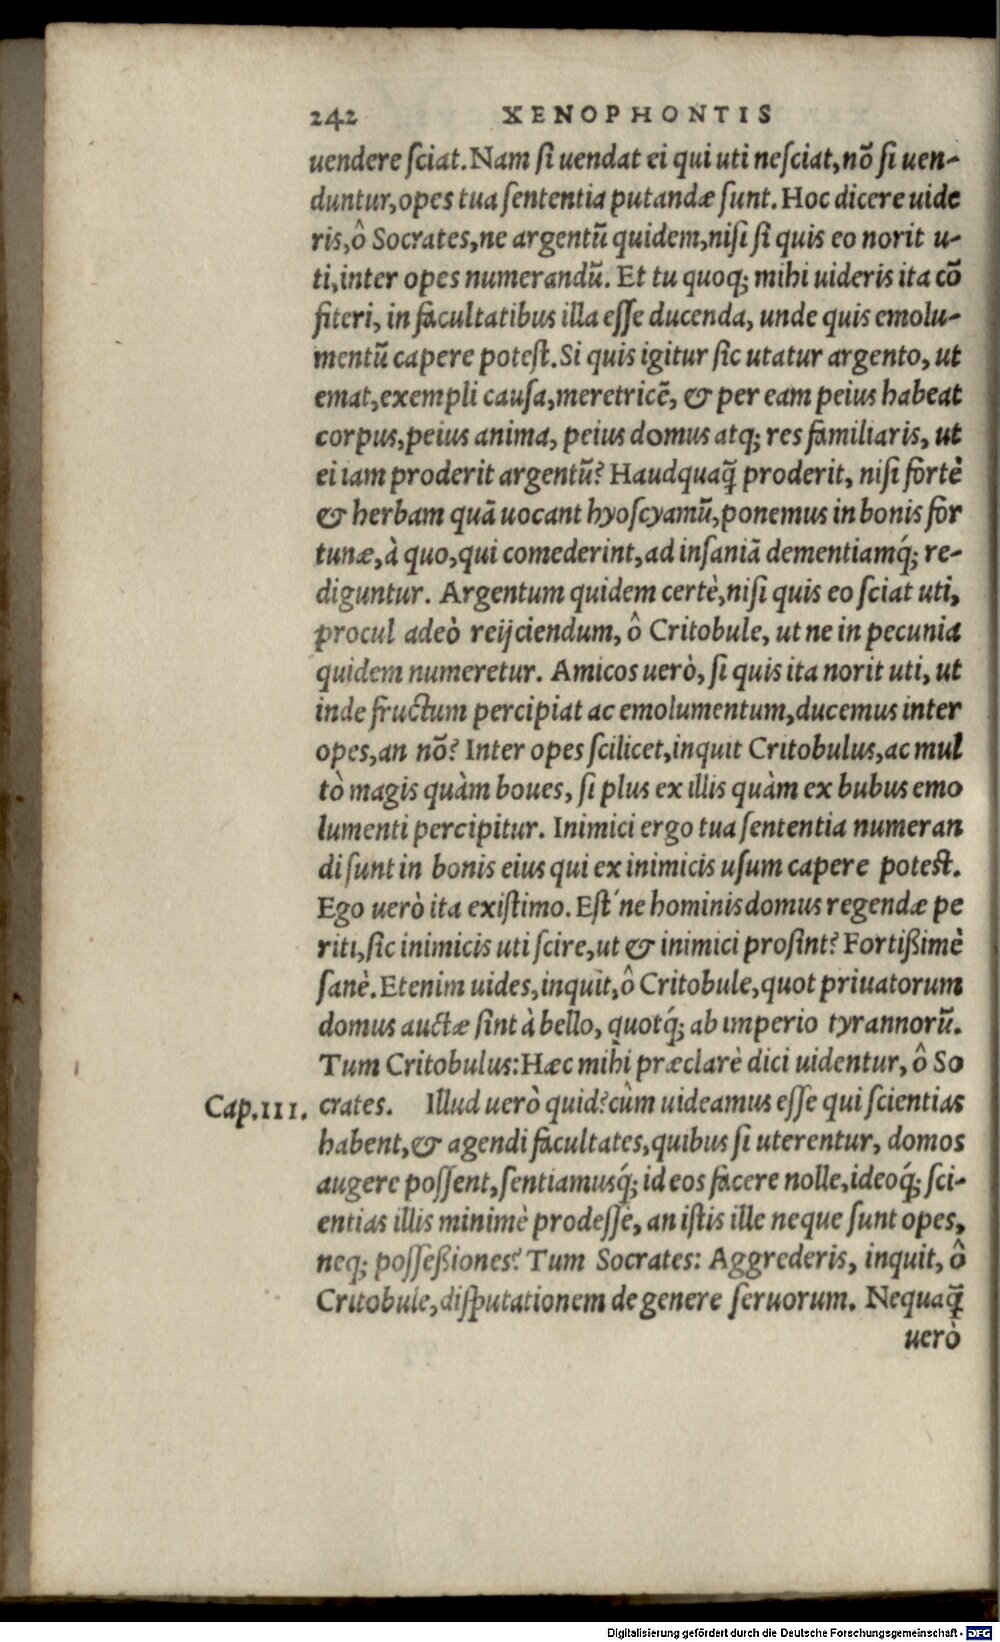 242 XENOPHONTIS
uendere ſciat. Nam ſi uendat ei qui uti neſciat, nõ ſi uen-
duntur, opes tua ſententia putandæ ſunt. Hoc dicere uide
ris, ô Socrates, ne argentũ quidem, niſi ſi quis eo norit u-
ti, inter opes numerandũ. Et tu quoq; mihi uideris ita cõ
fiteri, in facultatibus illa eſſe ducenda, unde quis emolu-
mentũ capere poteſt. Si quis igitur ſic utatur argento, ut
emat, exempli cauſa, meretricẽ, & per eam peius habeat
corpus, peius anima, peius domus atq; res familiaris, ut
ei iam proderit argentũ? Haudquaq̃ proderit, niſi fortè
& herbam quã uocant hyoſcyamũ, ponemus in bonis for
tunæ, à quo, qui comederint, ad inſaniã dementiamq́; re-
diguntur. Argentum quidem certè, niſi quis eo ſciat uti,
procul adeò reijciendum, ô Critobule, ut ne in pecunia
quidem numeretur. Amicos uerò, ſi quis ita norit uti, ut
inde fructum percipiat ac emolumentum, ducemus inter
opes, an nõ? Inter opes ſcilicet, inquit Critobulus, ac mul
tò magis quàm boues, ſi plus ex illis quàm ex bubus emo
lumenti percipitur. Inimici ergo tua ſententia numeran
di ſunt in bonis eius qui ex inimicis uſum capere poteſt.
Ego uerò ita exiſtimo. Eſt´ne hominis domus regendæ pe
riti, ſic inimicis uti ſcire, ut & inimici proſint? Fortißimè
ſanè. Etenim uides, inquit, ô Critobule, quot priuatorum
domus auctæ ſint à bello, quotq́; ab imperio tyrannorũ.
Tum Critobulus: Hæc mihi præclarè dici uidentur, ô So
Cap.III. crates. Illud uerò quid? cùm uideamus eſſe qui ſcientias
habent, & agendi facultates, quibus ſi uterentur, domos
augere poſſent, ſentiamusq́; id eos facere nolle, ideoq́; ſci-
entias illis minimè prodeſſe, an iſtis ille neque ſunt opes,
neq; poſſeßiones? Tum Socrates: Aggrederis, inquit, ô
Critobule, diſputationem de genere ſeruorum. Nequaq̃
uerò
Digitalisierung gefördert durch die Deutsche Forschungsgemeinschaft - DFG